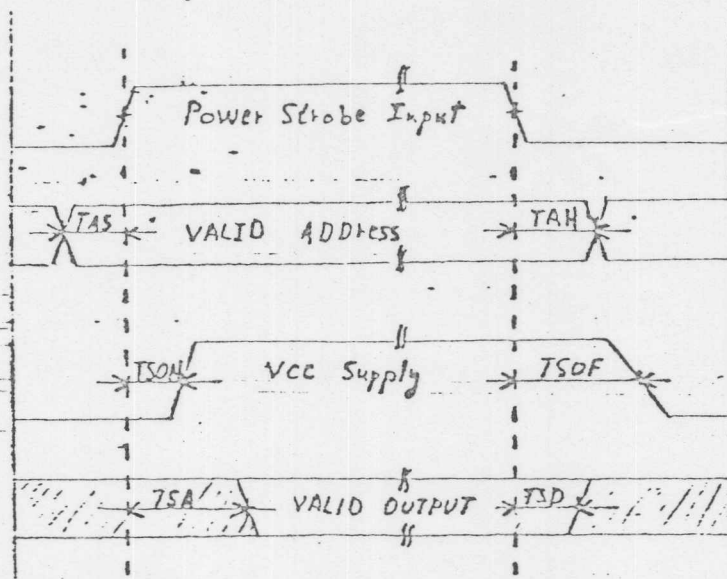 Power Strobe Input
TAS VALID ADDress TAH
TSON VCC Supply TSOF
TSA VALID OUTPUT TSD